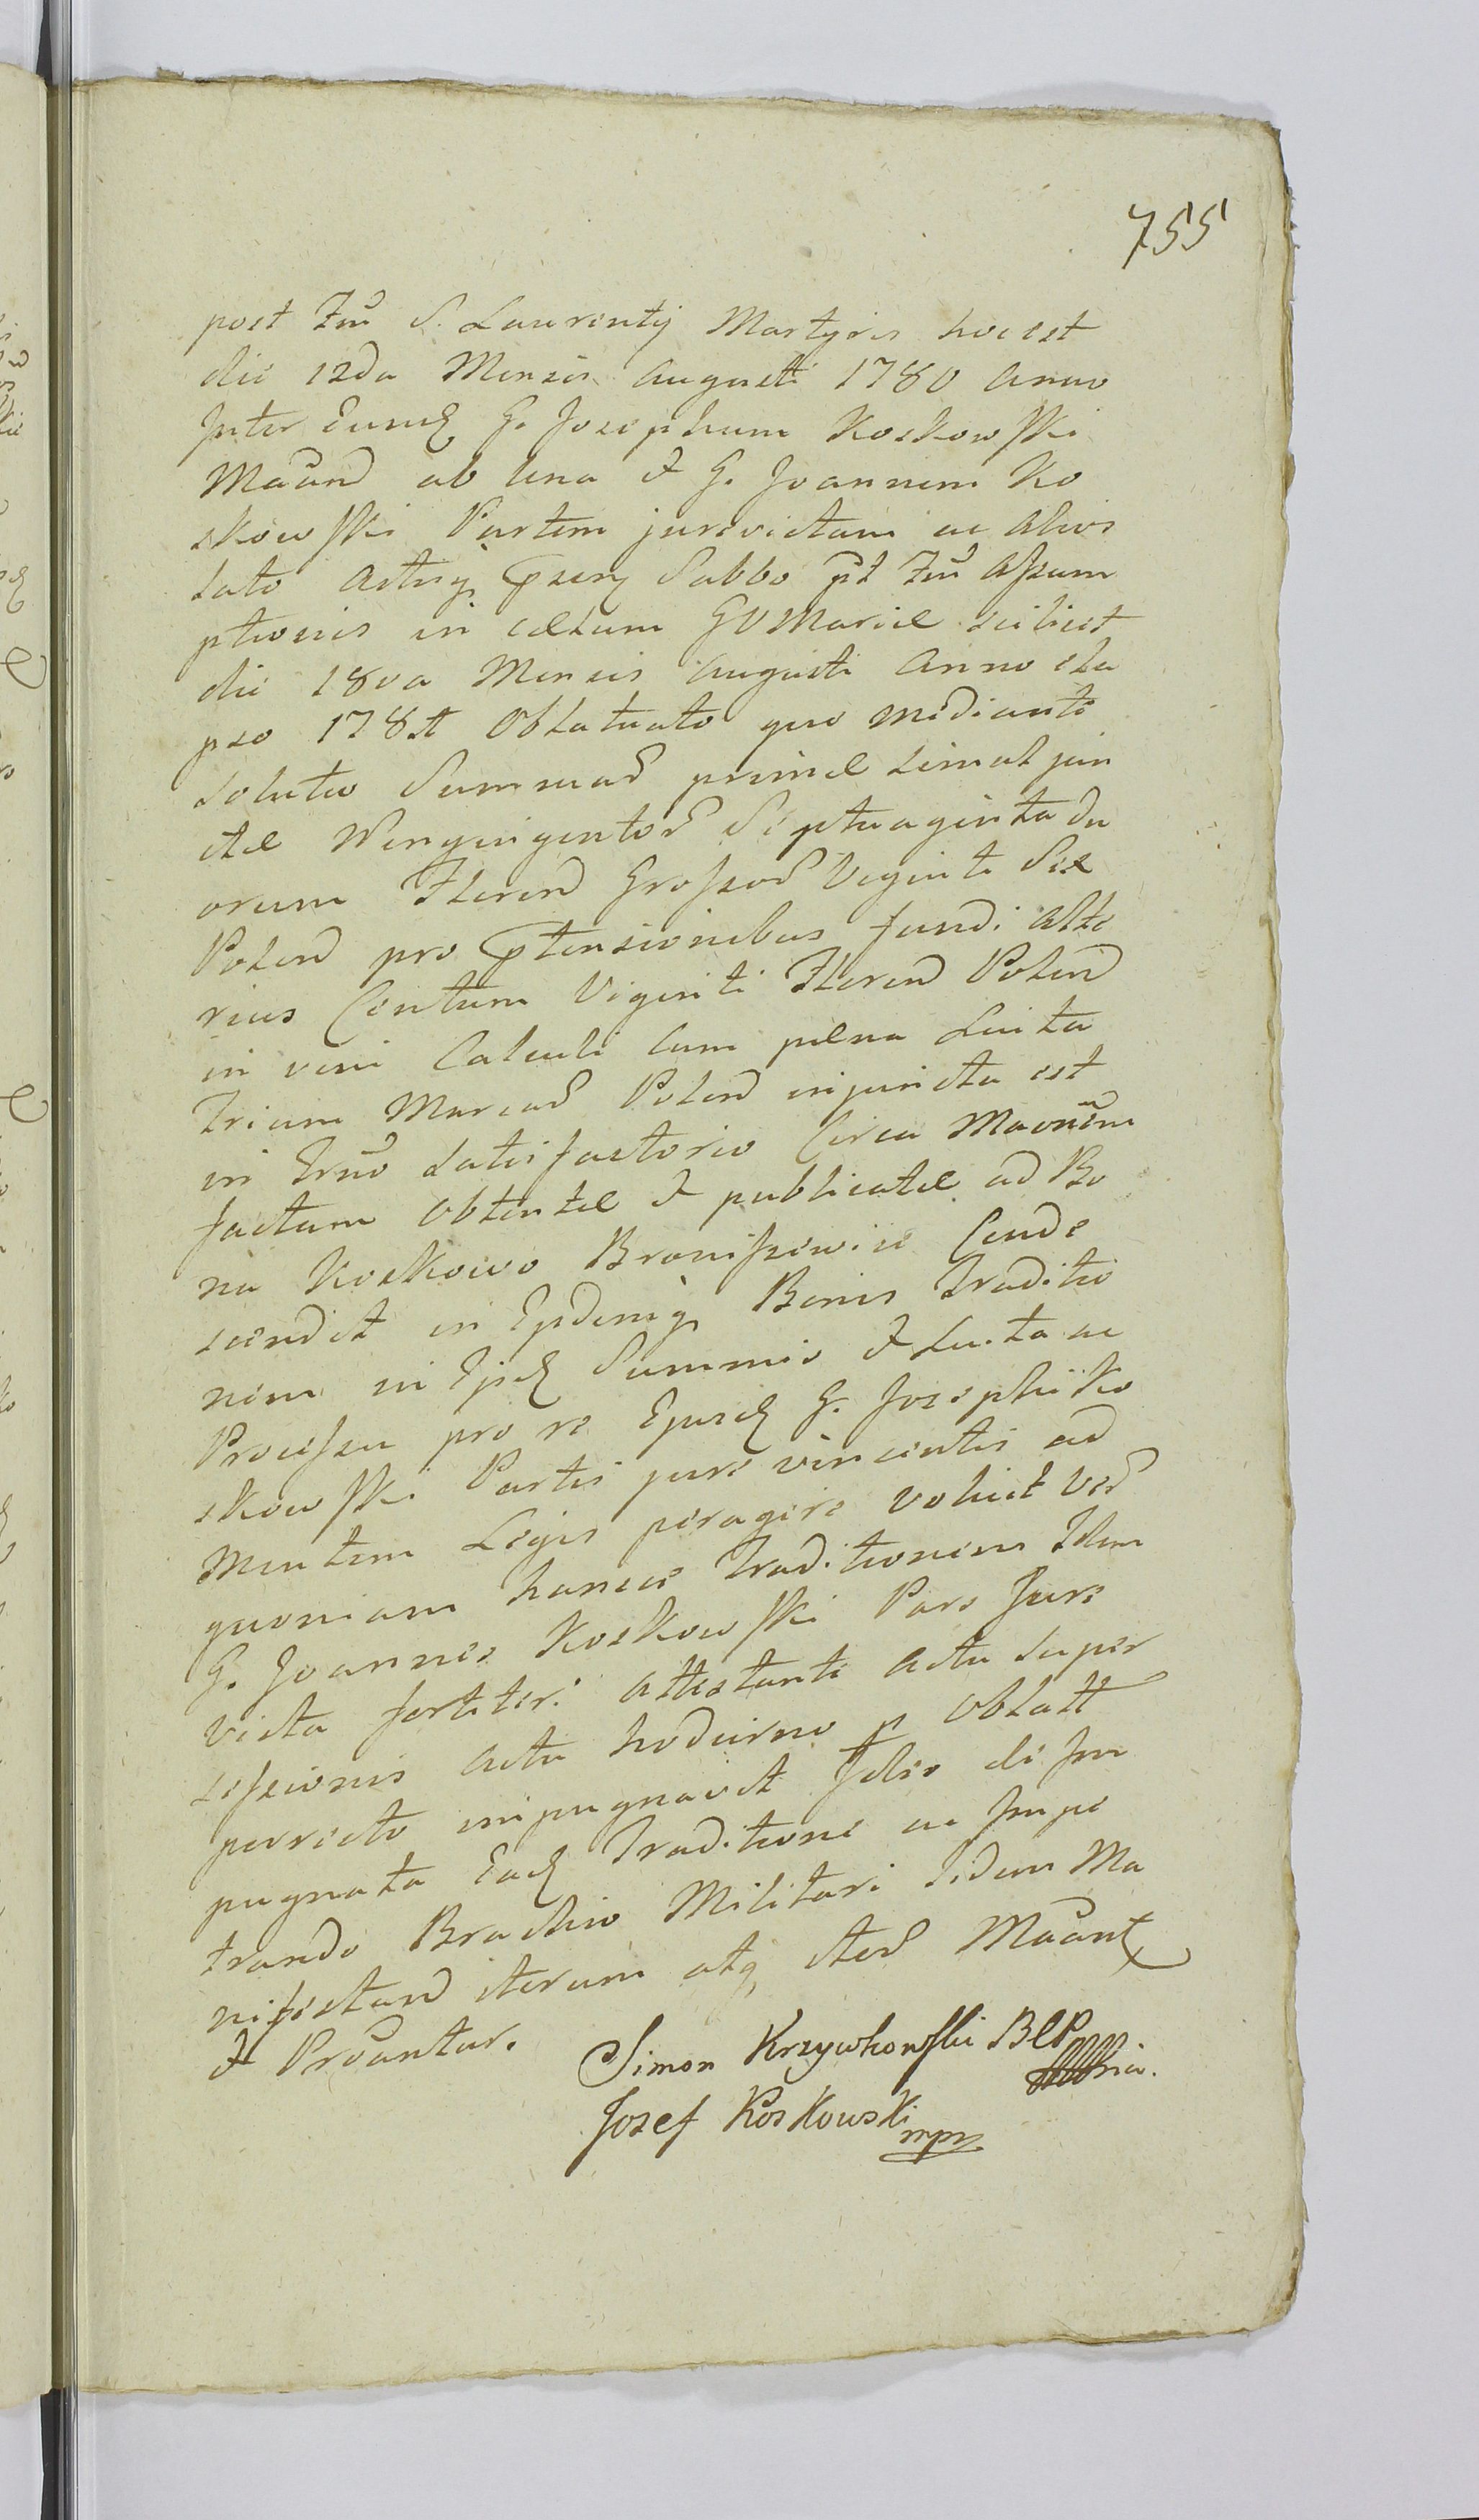 755
post Ftũ S. Laurentij Martyris hoc est
die 12da Mensis Augusti 1780 Anno
Inter Eund G. Josephum Koskowski
Maand ab una & G. Joannem Ko
skowski Partem jurevictam ac alios
lato Actisq psen Sabbo pt Ftũ Assum
ptionis in cælum GVMariæ scilicet
die 18va Mensis Augusti Anno ela
pso 178 Oblatuato quo mediante
solutio Summaꝝ primæ simul jun
ctæ Septuaginta du
orum Floren Grossoꝝ Viginti Sex
Polon pro ptensionibus fundi alte
rius Centum Viginti Floren Polon
in vim Calculi cum pæna Luita
trium Marcaꝝ Polon injuncta est
in Trno satisfactorio Circa
factam obtentæ & publicatæ ad Bo
na Koskowo Broniszewice Conde
scendit in Eisdemq Bonis Traditio
nem in Ejsd Summis & Luita ac
Processu pro re Ejusd G. Josephi Ko
skowski Partis jure vincentis ad
Mentem Legis peragere voluit Veꝝ
quoniam hancce Traditionem Idem
G. Joannes Koskowski Pars Jure
victa fortiter attestante Actu super
sessionis Actu hodierno p Oblatt
porrecto impugnavit Ideo de Im
pugnata Ead Traditione ac Impe
trando Brachio Militari eidem Ma
nifestand iterum atq iteꝝ Maant
& Proantur.
Simon Krzywkowski BCP
Josef Koskowski
mpr